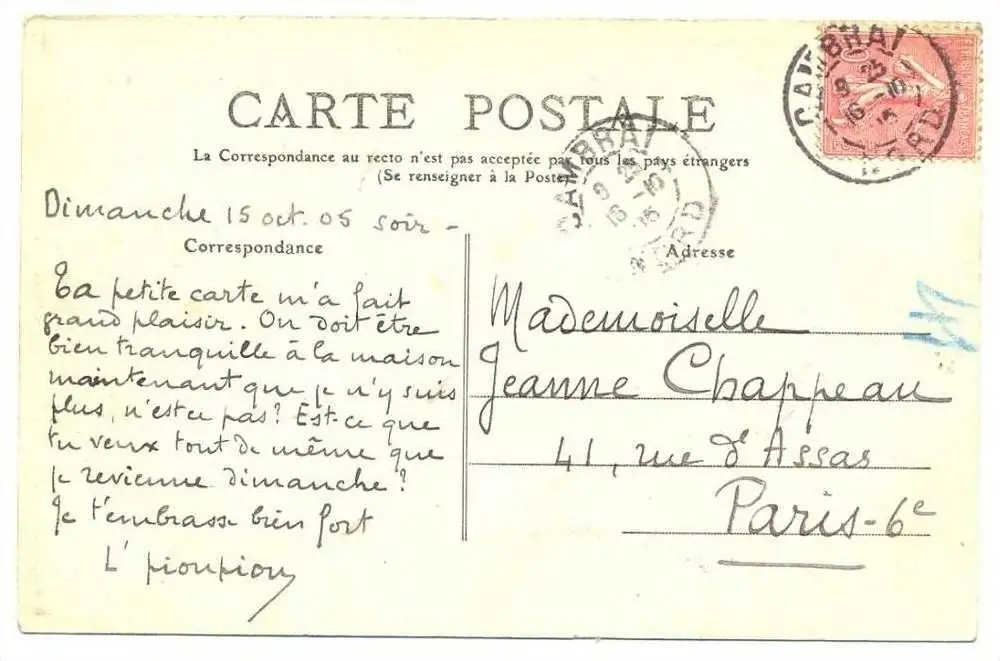 CARTE POSTALE
La Correspondance au recto n'est pas acceptée par tous les pays étrangers
(Se renseigner à la Poste)
CAMBRAI
9 25
16 -10
05
NORD
CAMBRAI
9 25
16 -10
05
NORD
Dimanche 15 oct. 05 soir -
Correspondance
Ta petite carte m'a fait
grand plaisir. On doit être
bien tranquille à la maison
maintenant que je n'y suis
plus, n'est ce pas? Est-ce que
tu veux tout de même que
je revienne dimanche?
Je t'embrasse bien fort
L' pioupiou
Adresse
Mademoiselle
Jeanne Chappeau
41, rue d'Assas
Paris-6e